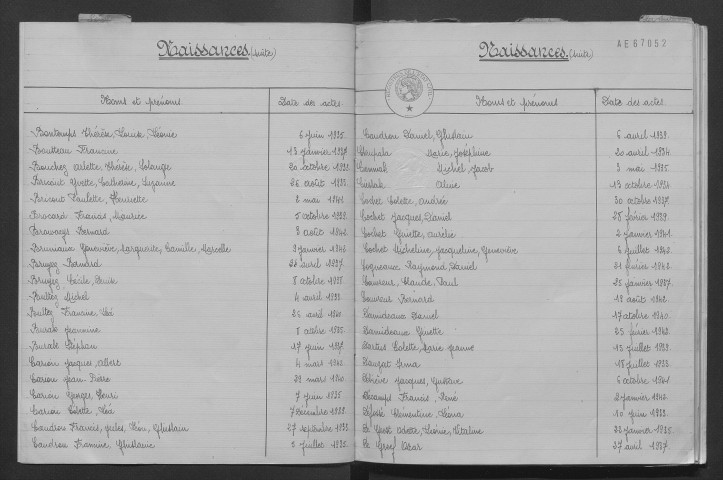 Naissances (suite)
Noms et prénoms Date des actes
Bontemps Thérèse, Louise, Léonie 6 juin 1935.
Boutteau Francine 13 janvier 1937
Bouchez Arlette, Thérèse, Solange 20 octobre 1932
Bricout Yvette, Catherine, Suzanne 26 août 1933
Bricout Paulette, Henriette 2 mai 1941
Brocard Francis, Maurice 5 octobre 1939
Bernard 3 août 1942
Bruniaux Geneviève, Marguerite, Camille, Marcelle 2 janvier 1942
Bruyez Bernard 22 avril 1937
Bruyez Cécile, Louise 8 octobre 1938
Bultez Michel 4 avril 1939
Bultez Francine, Zoé 25 avril 1940
Burale Jeannine 8 octobre 1935
Burale Stéphan 17 juin 1937
Carion Jacques, Albert 4 mars 1942
Carion Jean Pierre 29 mars 1940
Carion Georges, Henri 7 juin 1935
Carion Colette, Léa 7 décembre 1932
Caudron Francis, Jules, Léon, Ghislain 27 septembre 1933
Caudron Francine, Ghislaine 2 juillet 1935
AE67052
Naissances (suite)
Noms et prénoms Date des actes
Caudron Daniel, Ghislain 6 avril 1939.
Marie, Joséphine 20 avril 1934
Michel Jacob 3 mai 1935
Aline 13 octobre 1934
Cochet Colette, Andrée 30 octobre 1937
Cochet Jacques, Daniel 28 février 1939
Cochet Ginette, Aurélie 2 janvier 1941
Cochet Micheline, Jacqueline, Geneviève 6 juillet 1942
Cogneaux Raymond, Daniel 21 février 1942
Couvreur Claude, Paul 25 janvier 1937
Couvreur Bernard 18 août 1942
Damideaux Daniel 17 octobre 1940
Damideaux Ginette 25 février 1942
Dartus Colette, Marie Jeanne 15 juillet 1939
Dauzat Irma 18 juillet 1933
Debève Jacques, Gustave 6 octobre 1941
Decamps Francis, René 2 janvier 1942
Clémentine, Léona 10 juin 1933
De Geest Odette, Léonie, Vitaline 22 janvier 1935
De Greef Oscar 27 avril 1937